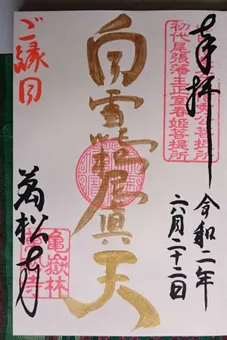 奉拝
初代尾張藩主正室春姫菩提所
秀公菩提所
令和二年
六月二十二日
白雪吒枳尼眞天
ご縁日
萬松寺
亀嶽林